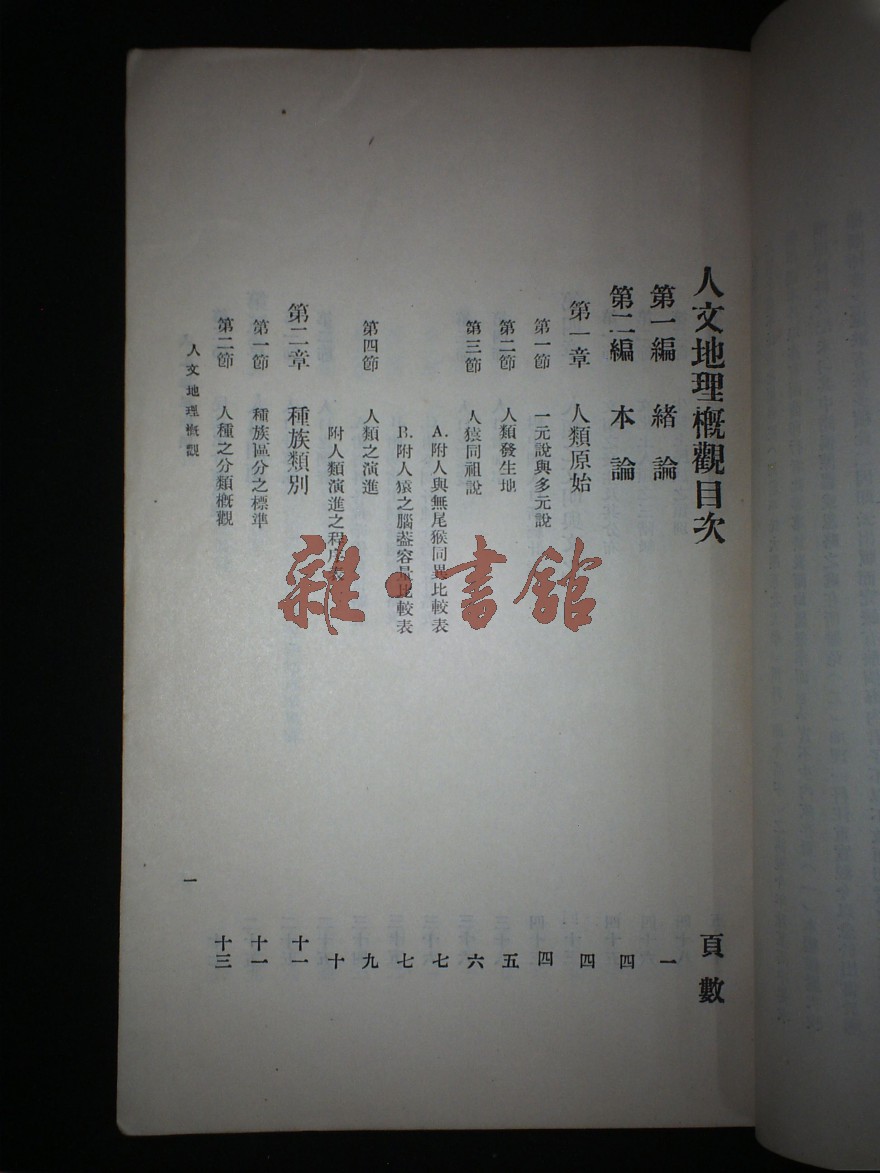 人文地理概觀目次 頁數
第一編 緒論 一
第二編 本論 四
第一章 人類原始 四
第一節 一元說與多元說 四
第二節 人類發生地 五
第三節 人猿同祖說 六
A.附人與無尾猴同異比較表 七
B.附人猿之腦蓋容量比較表 七
第四節 人類之演進 九
附人類演進之程序表 十
第二章 種族類別 十一
第一節 種族區分之標準 十一
第二節 人種之分類概觀 十三
人文地理概觀 一
雜·書館